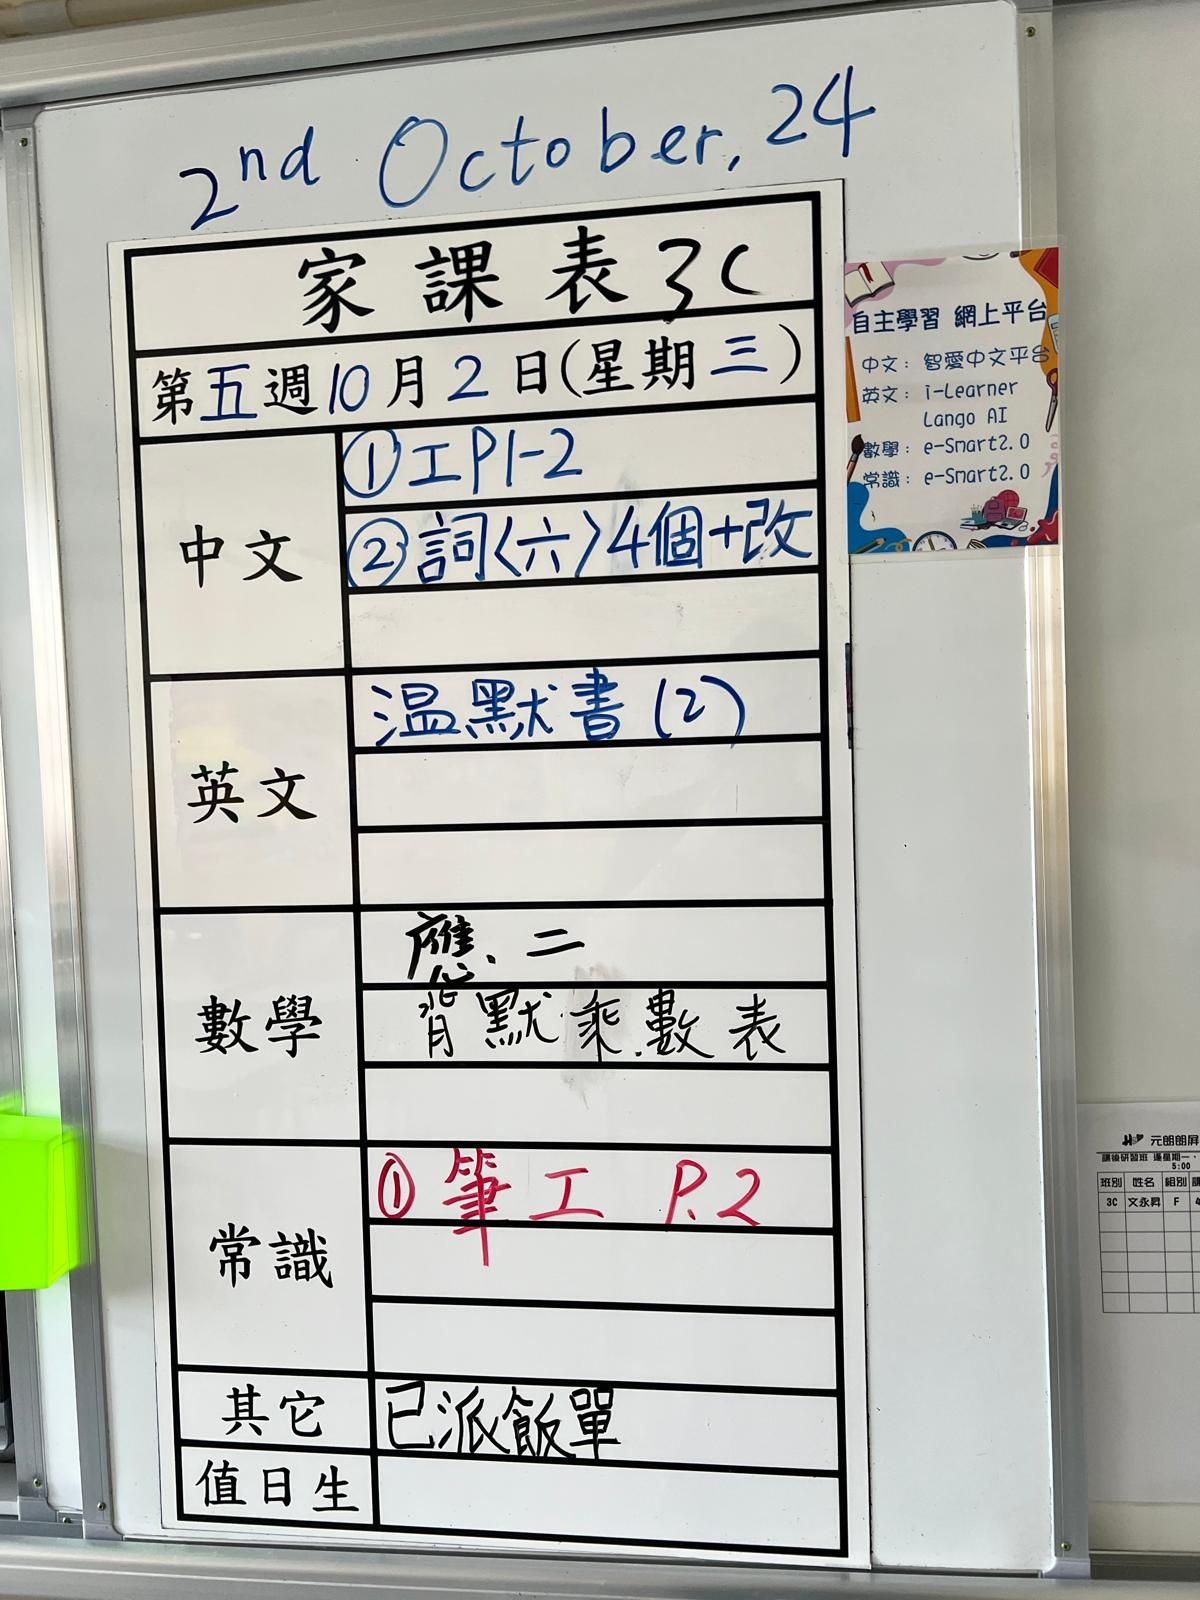 2nd October, 24
家課表 3C
第五週10月2日(星期三)
中文
①工P1-2
②詞〈六〉4個+改
英文
溫默書(2)
數學
應、二
背默乘數表
常識
① 筆工 P.2
其它
已派飯單
值日生
自主學習 網上平台
中文: 智愛中文平台
英文: i-Learner
Lango AI
數學: e-Smart2.0
常識: e-Smart2.0
元朗朗屏
課後研習班 逢星期一、
5:00
班別 姓名 組別
3C 文永昇 F 4